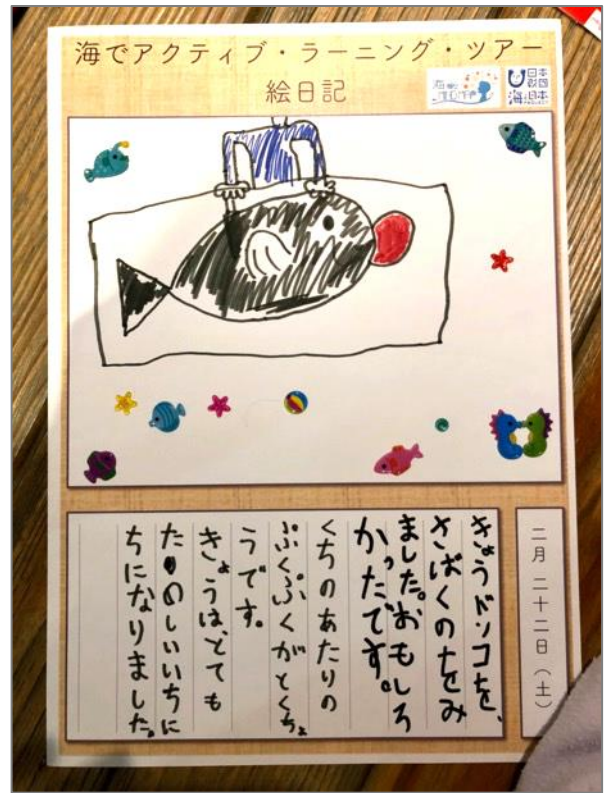 海でアクティブ・ラーニング・ツアー
絵日記
日本
財団
海と日本
PROJECT
二月 二十二日（土）
きょうドンコを、
さばくのをみ
ました。おもしろ
かったです。
くちのあたりの
ぷくぷくがとくちょ
うです。
きょうは、とても
たのしいいちに
ちになりました。